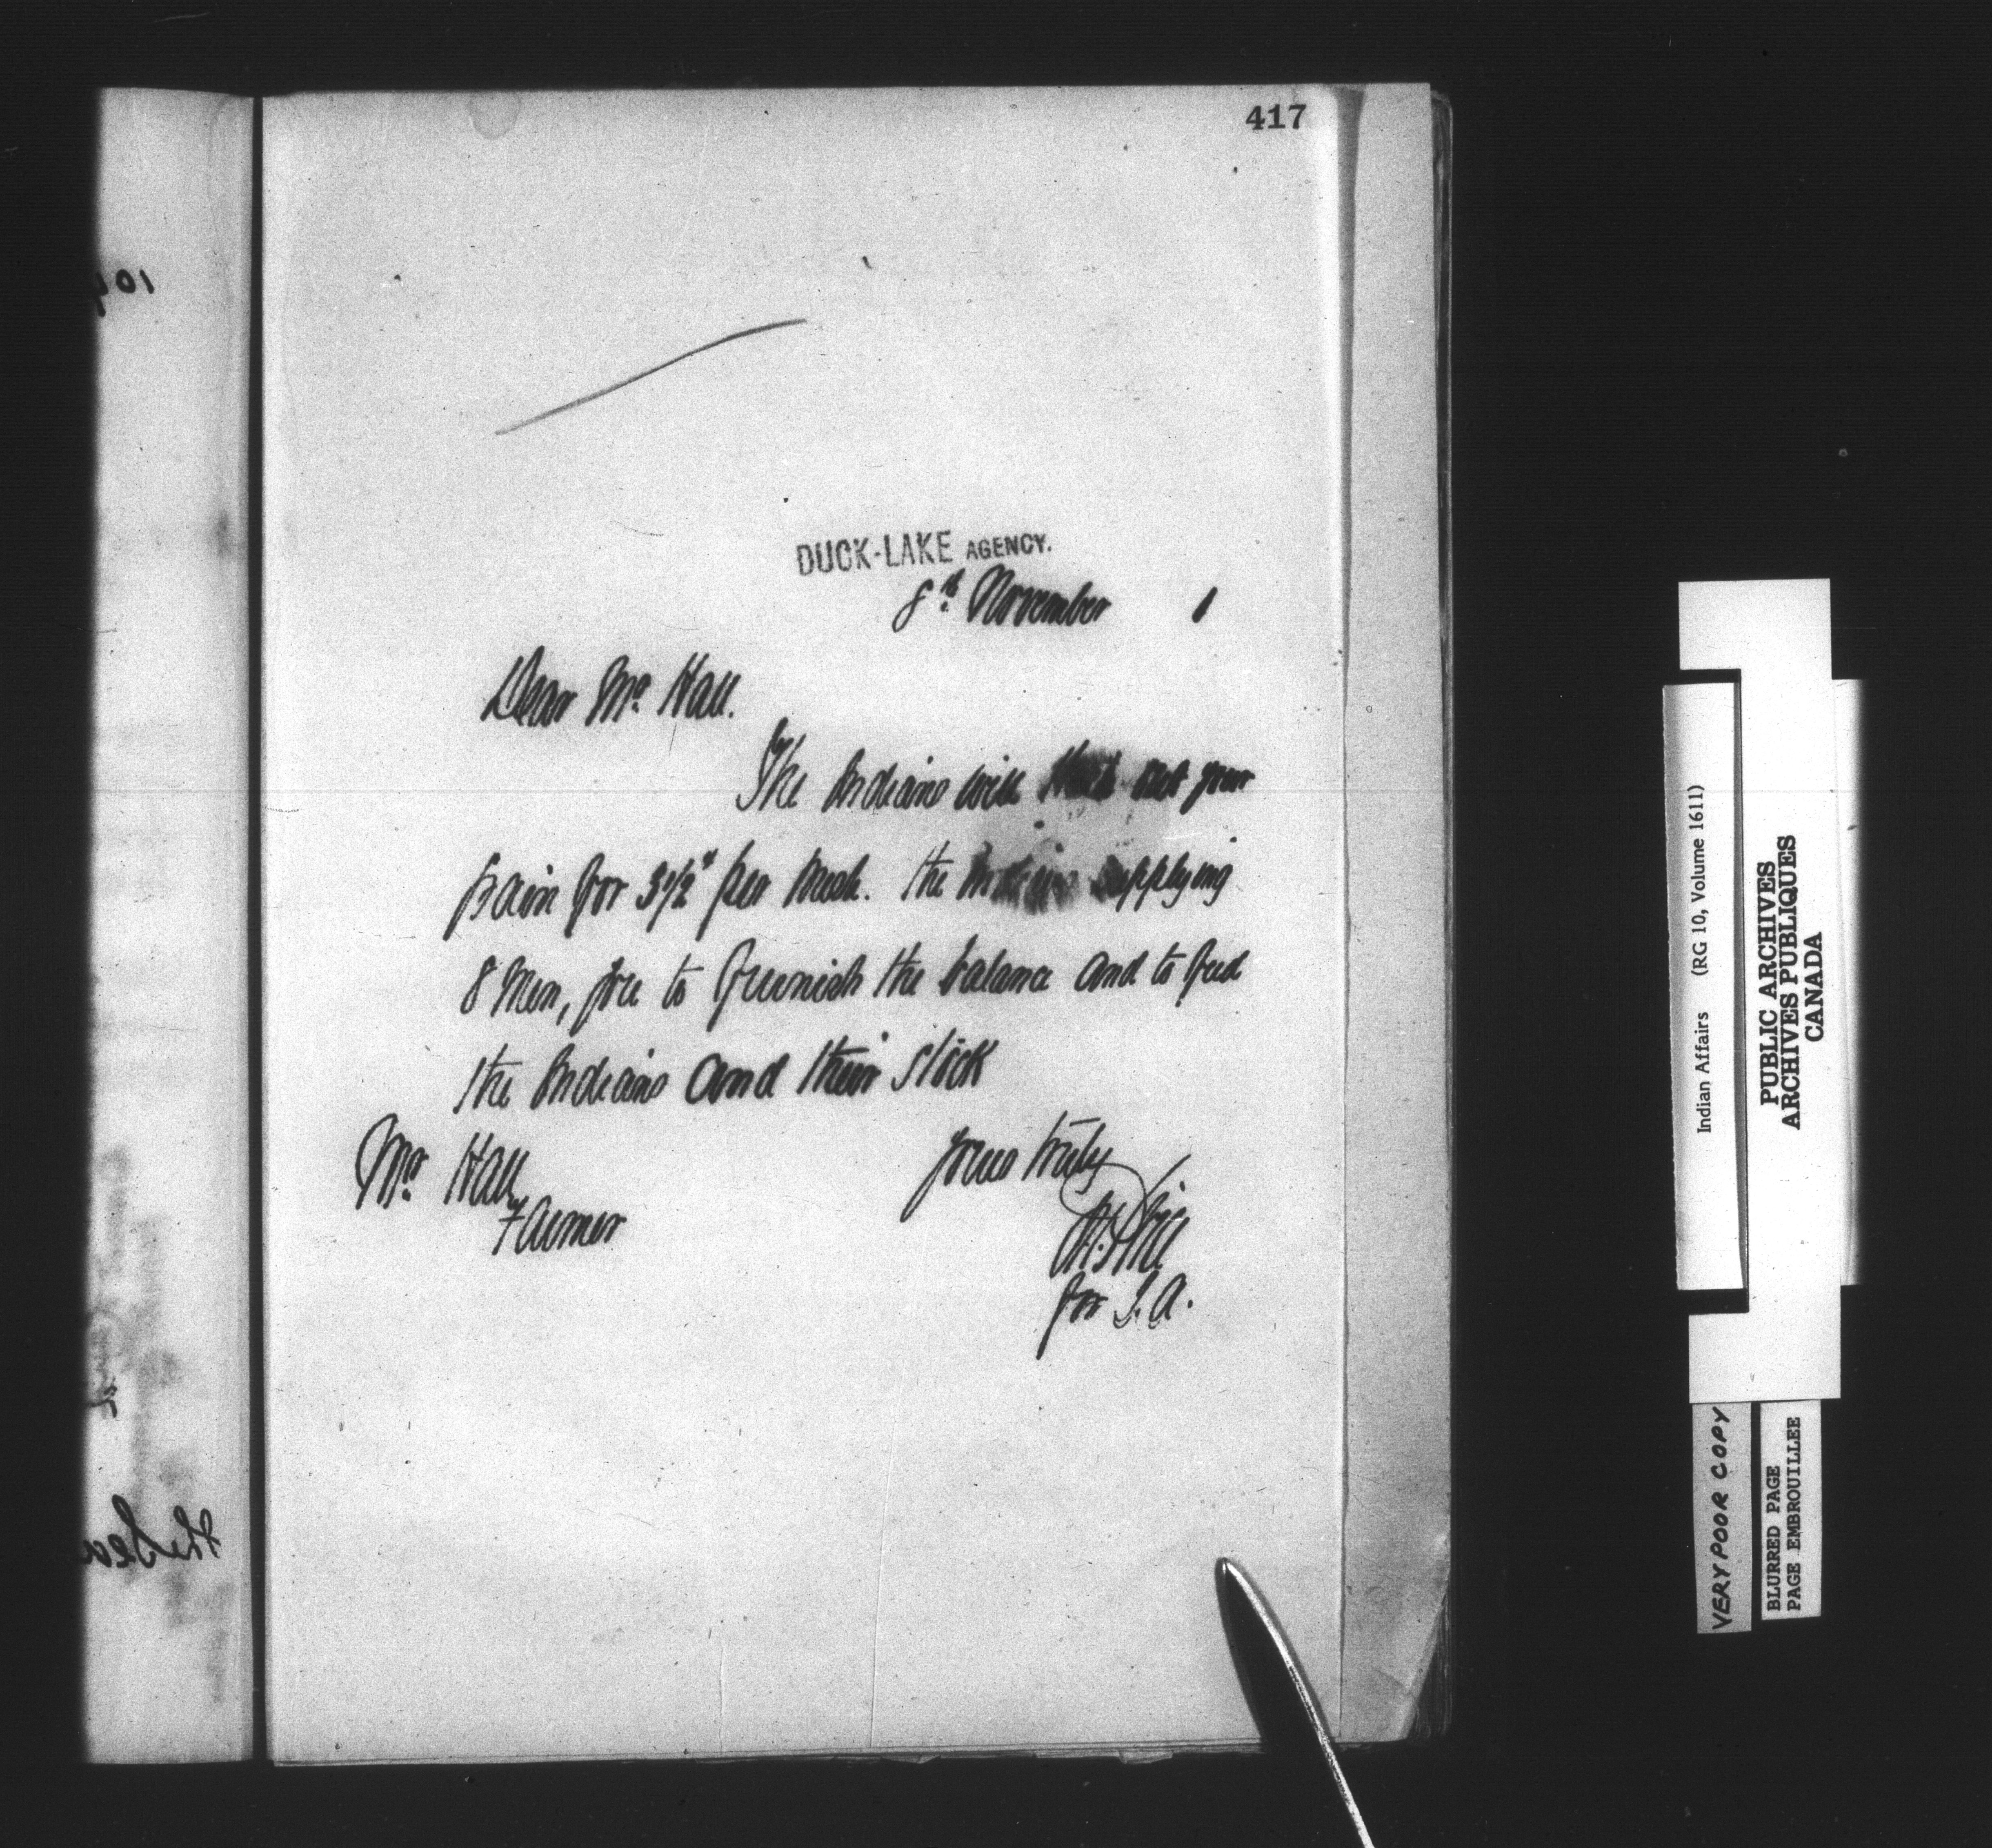 417
DUCK-LAKE AGENCY.
8th November 1
Dear Mr. Hall.
The Indians will your
for 3½ per the Indians supplying
8 Men, you to furnish the balance and to feed
the Indians and their stock
Yours truly
Mr. Hall
Farmer
for I. A.
Indian Affairs (RG 10, Volume 1611)
PUBLIC ARCHIVES
ARCHIVES PUBLIQUES
CANADA
VERY POOR COPY
BLURRED PAGE
PAGE EMBROUILLEE